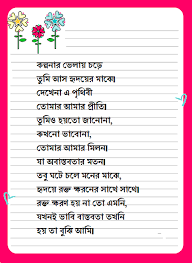 কল্পনার ভেলায় চড়ে
তুমি আস হৃদয়ের মাঝে।
দেখেনা এ পৃথিবী
তোমার আমার প্রীতি।
তুমিও হয়তো জানোনা,
কখনো ভাবোনা,
তোমার আমার মিলন।
যা অবাস্তবতার মতন।
তবু ঘটে চলে মনের মাঝে,
হৃদয়ে রক্ত ক্ষরনের সাথে সাথে।
রক্ত ক্ষরণ হয় না তো এমনি,
যখনই ভাবি বাস্তবতা তখনি
হয় তা বুঝি আমি।